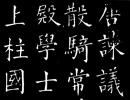 居諫議
散騎常
殿學士
上柱國